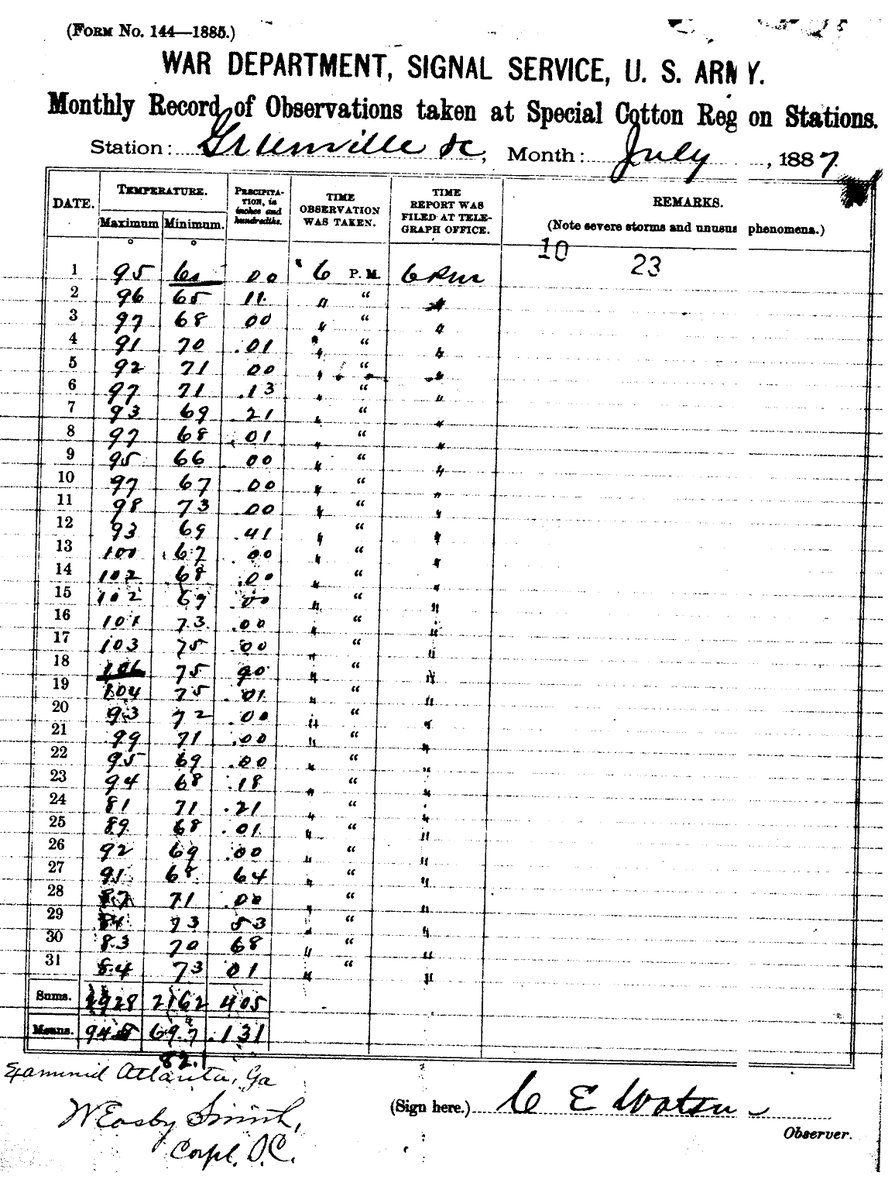 (FORM NO. 144—1885.)
WAR DEPARTMENT, SIGNAL SERVICE, U. S. ARMY.
Monthly Record of Observations taken at Special Cotton Reg on Stations.
Station: Greenville SC, Month: July, 1887
DATE. TEMPERATURE. PRECIPITATION, in inches and hundredths. TIME OBSERVATION WAS TAKEN. TIME REPORT WAS FILED AT TELEGRAPH OFFICE. REMARKS.
Maximum Minimum. (Note severe storms and unusual phenomena.)
° ° 10
1 95 60 .00 6 P.M. 6 P.M. 23
2 96 65 .11 " “ "
3 97 68 .00 " “ "
4 91 70 .01 " “ "
5 92 71 .00 " “ "
6 97 71 .13 " “ "
7 93 69 .21 " “ "
8 97 68 .01 " “ "
9 95 66 .00 " “ "
10 97 67 .00 " “ "
11 98 73 .00 " “ "
12 93 69 .41 " “ "
13 100 67 .00 " “ "
14 102 68 .00 " “ "
15 102 69 .00 " “ "
16 101 73 .00 " “ "
17 103 75 .00 " “ "
18 106 75 90 " “ "
19 104 75 .01 " “ "
20 93 72 .00 " “ "
21 99 71 .00 " “ "
22 95 69 .00 " “ "
23 94 68 .18 " “ "
24 81 71 .21 " “ "
25 89 68 .01 " “ "
26 92 69 .00 " “ "
27 91 68 64 " “ "
28 87 71 .00 " “ "
29 84 73 53 " “ "
30 83 70 68 " “ "
31 84 73 01 " “ "
Sums. 2928 2162 405
Means. 94.5 69.7 .131
82.1
Examined Atlanta, Ga
W Easby Smith,
Corpl. S.C.
(Sign here.) C E Watson
Observer.